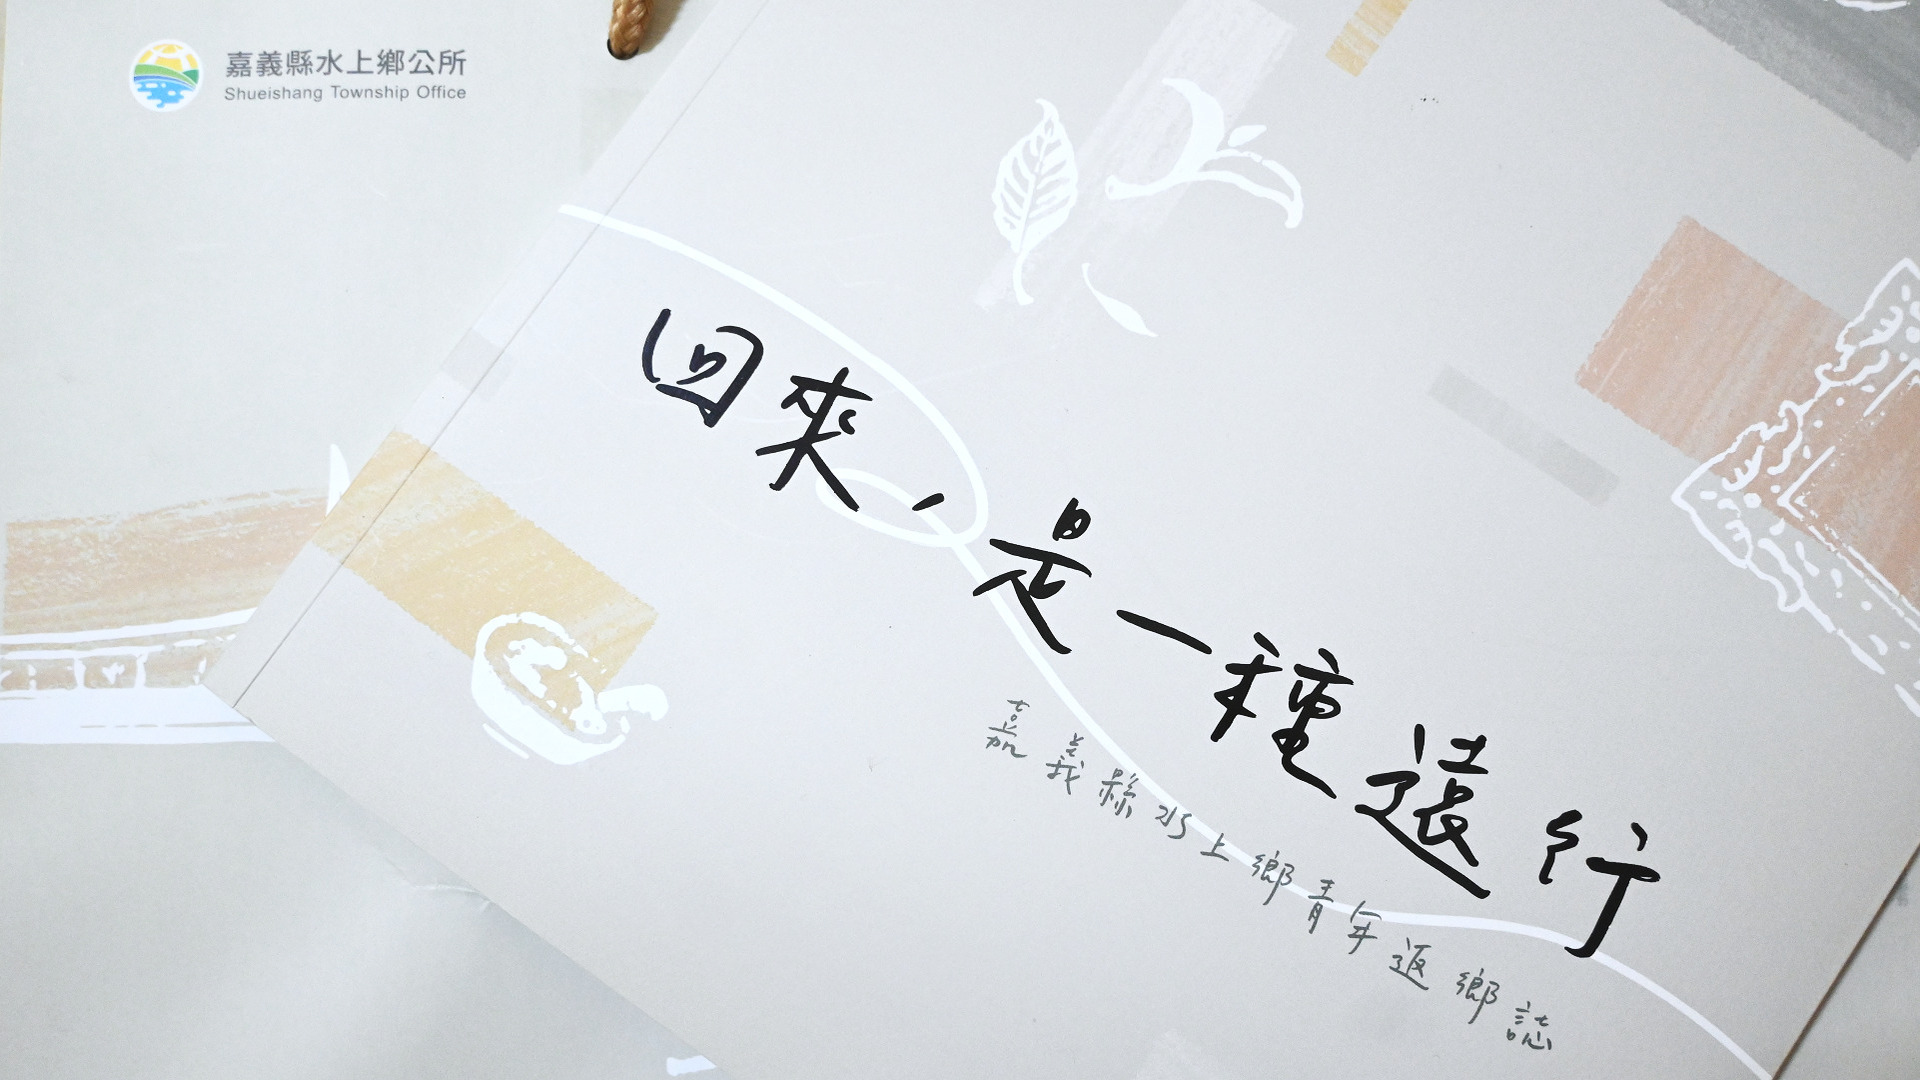 嘉義縣水上鄉公所
Shueishang Township Office
回來,是一種遠行
嘉義縣水上鄉青年返鄉誌